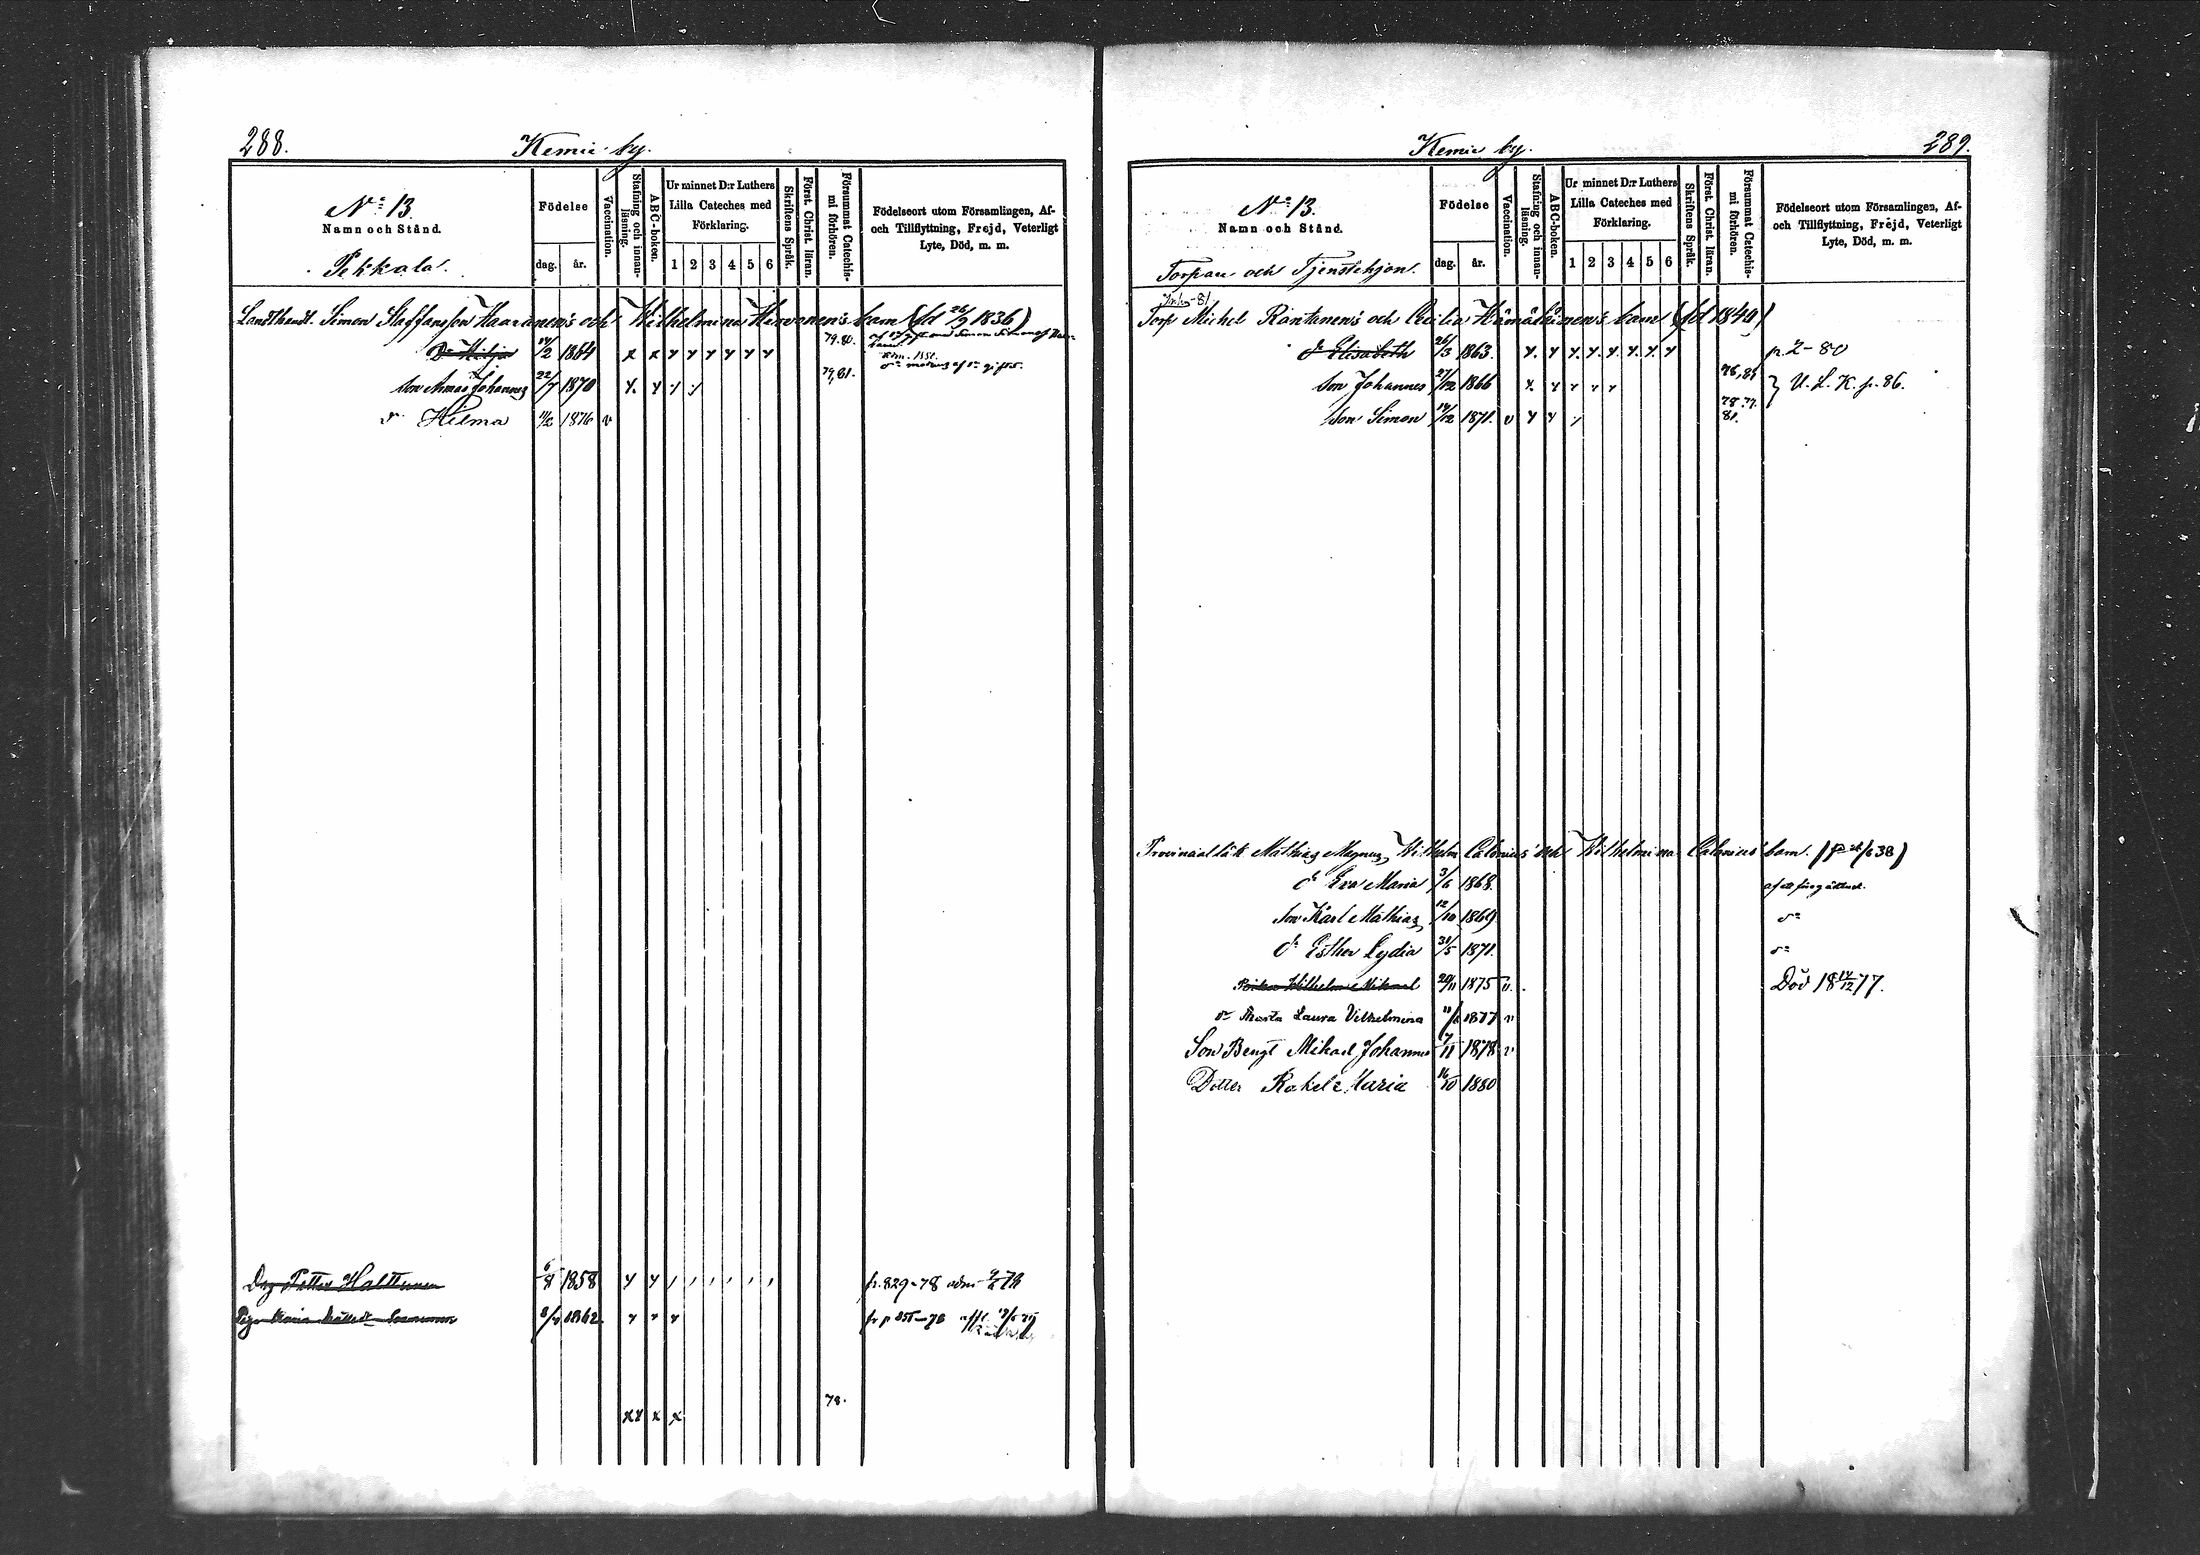 288.
Kemie by.
N:o 13.
Namn och Stånd.
Pekkala.
Födelse
dag.
år.
Vaccination.
Stafning och innan-läsning.
ABC-boken.
Ur minnet D:r Luthers
Lilla Cateches med
Förklaring.
1 2 3 4 5 6
Skriftens Språk.
Först. Christ. läran.
Försummat Catechis-mi förhören.
Födelseort utom Församlingen, Af-
och Tillflyttning, Frejd, Veterligt
Lyte, Död, m. m.
Landthandl. Simon Staffansson Haaranen's och Wilhelmina Hirvonen's barn (fd 26/9 1836)
Dr Hilja 14/2 1864 x x y y y y y y 79. 80.
Son Johannes 22/7 1870 79, 81.
dr Hilma 11/2 1876 v
Petter Halttunen 6/8 1858 fr. 829-78
Maria 1862 fr p 851-78
78.
xx x x
Kemie by.
289.
N:o 13.
Namn och Stånd.
Torpare och Tjenstehjon.
Födelse
dag.
år.
Vaccination.
Stafning och innan-läsning.
ABC-boken.
Ur minnet D:r Luthers
Lilla Cateches med
Förklaring.
1 2 3 4 5 6
Skriftens Språk.
Först. Christ. läran.
Försummat Catechis-mi förhören.
Födelseort utom Församlingen, Af-
och Tillflyttning, Frejd, Veterligt
Lyte, Död, m. m.
Torp Michel Rantanen's och Cecilia Hämäläinen's barn (fd 1840)
dr Elisabeth 26/3 1863. y. y y. y. y. y. y. y p. 2-80
Son Johannes 27/12 1866 } U. L. K. p. 86.
78. 79.
Son Simon 14/12 1871. v y y 81.
Provincialläk. Mathias Magnus Wilhelm Calonius' och Wilhelmina Calonius' barn.
dr Eva Maria 3/6 1868.
Son Karl Mathias 12/10 1869 do
dr Esther Lydia 31/5 1871. do
Wilhelm Mikael 20/11 1875 v. Död 18 14/12 77.
dr Marta Laura Vilhelmina 1877 v
Son Bengt Mikael Johannes 7/11 1878 v
Dotter Rakel Maria 16/10 1880